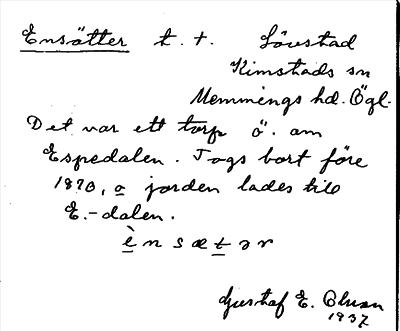 Ensätter t. t. Lövstad
Kimstads sn
Memmings hd. Ögl.
Det var ett torp ö. om
Espedalen. Togs bort före
1870, o jorden lades till
E.-dalen.
è n s æ t ə r
Gustaf E. Olsson
1937